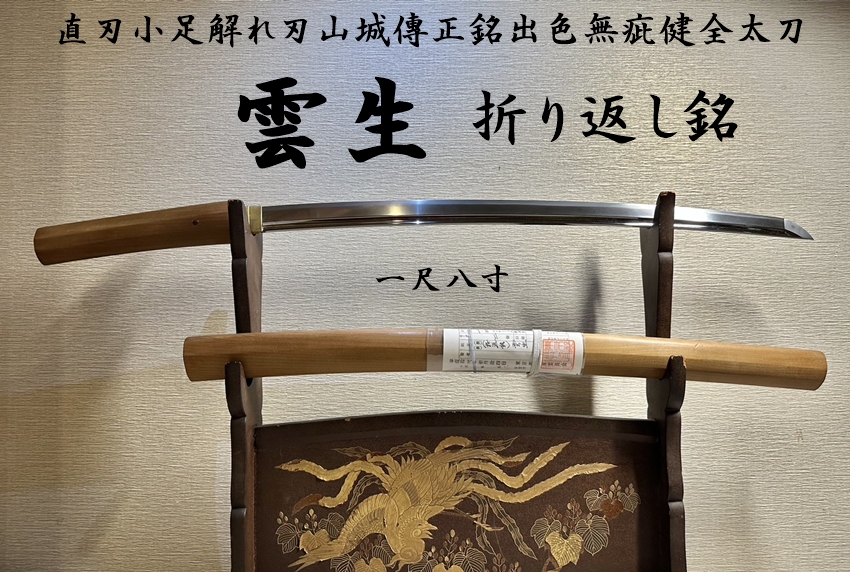 直刃小足解れ刃山城傳正銘出色無疵健全太刀
雲生 折り返し銘
一尺八寸